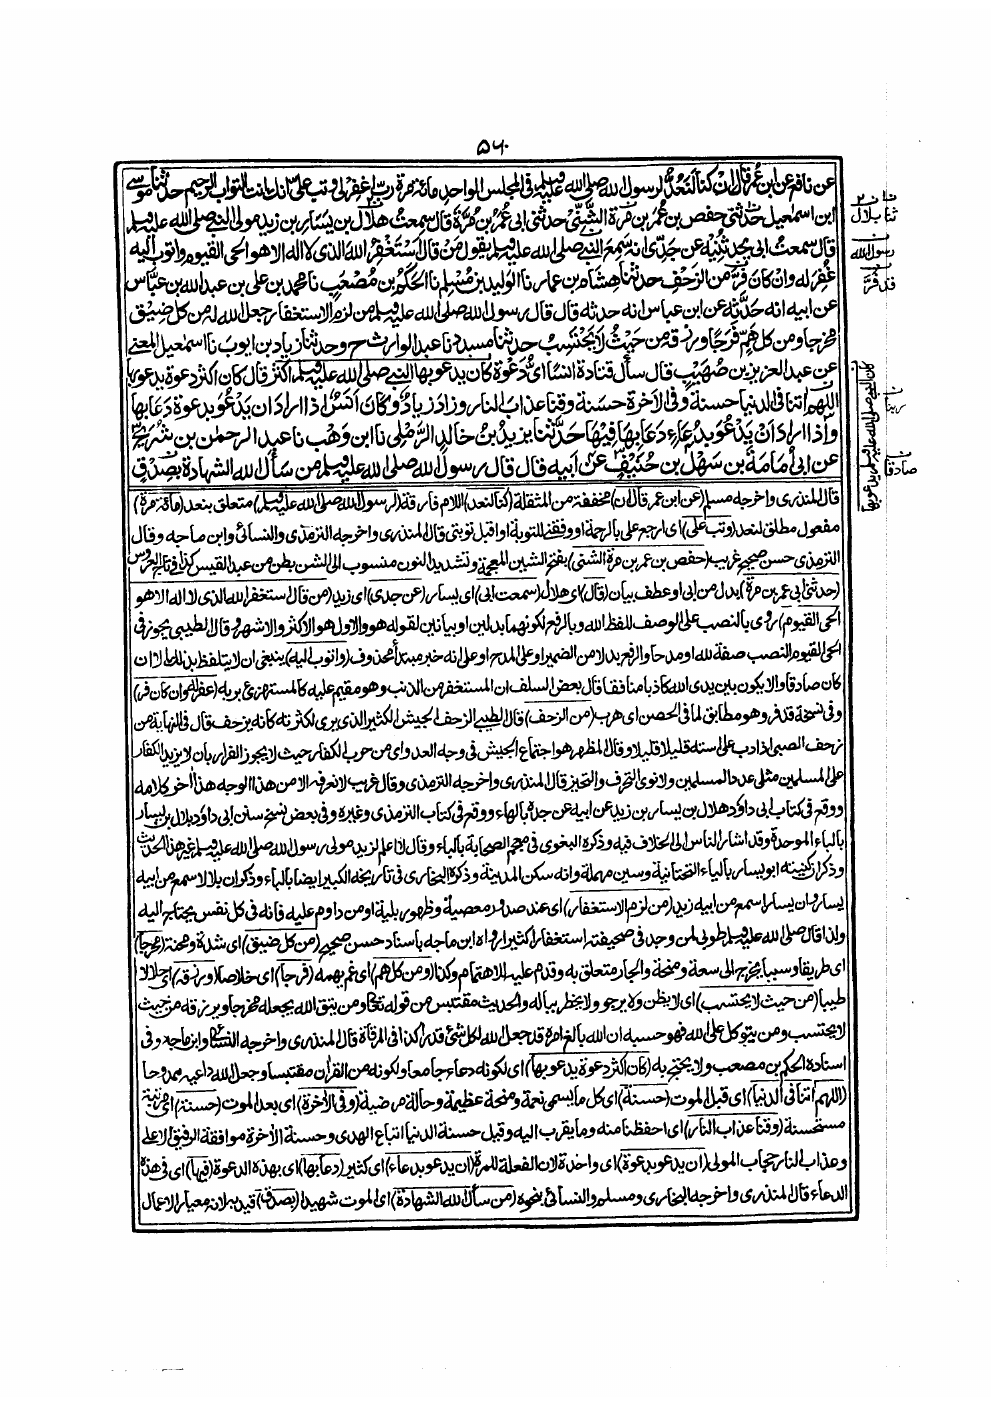 ۵۶۰
عن نافع عن ابن عمر قال ان كنا لنعد لرسول الله صلى الله عليه وسلم في المجلس الواحد مائة مرة رب اغفر لي وتب علي انك انت التواب الرحيم حدثنا موسى
ابن اسمعيل حدثني حفص بن عمر بن مرة الشني حدثني ابي عمر بن مرة قال سمعت هلال بن يسار بن زيد مولى النبي صلى الله عليه وسلم
قال سمعت ابي يحدثنيه عن جدي انه سمع النبي صلى الله عليه وسلم يقول من قال استغفر الله الذي لا اله الا هو الحي القيوم واتوب اليه
غفر له وان كان فر من الزحف حدثنا هشام بن عمار نا الوليد بن مسلم نا الحكم بن مصعب نا محمد بن علي بن عبد الله بن عباس
عن ابيه انه حدثه عن ابن عباس انه حدثه قال قال رسول الله صلى الله عليه وسلم من لزم الاستغفار جعل الله له من كل ضيق
مخرجا ومن كل هم فرجا ورزقه من حيث لا يحتسب حدثنا مسدد نا عبد الوارث ح وحدثنا زياد بن ايوب نا اسمعيل المعنى
عن عبد العزيز بن صهيب قال سأل قتادة انسا اي دعوة كان يدعو بها النبي صلى الله عليه وسلم اكثر قال كان اكثر دعوة يدعو بها
اللهم اتنا في الدنيا حسنة وفي الآخرة حسنة وقنا عذاب النار وزاد زياد وكان انس اذا اراد ان يدعو بدعوة دعا بها
واذا اراد ان يدعو بدعاء دعا بها فيها حدثنا يزيد بن خالد الرملي نا ابن وهب نا عبد الرحمن بن شريح
عن ابي امامة بن سهل بن حنيف عن ابيه قال قال رسول الله صلى الله عليه وسلم من سأل الله الشهادة بصدق
ثنا بلال
رسول الله
قد فر
صادقا
قال المنذري واخرجه مسلم (عن ابن عمر قال ان) مخففة من المثقلة (كنا لنعد) اللام فارقة (لرسول الله صلى الله عليه وسلم) متعلق بنعد (مائة مرة)
مفعول مطلق لنعد (وتب علي) اي ارجع علي بالرحمة او وفقني للتوبة او اقبل توبتي قال المنذري واخرجه الترمذي والنسائي وابن ماجه وقال
الترمذي حسن صحيح غريب (حفص بن عمر بن مرة الشني) بفتح الشين المعجمة وتشديد النون منسوب الى الشن بطن من عبد القيس كذا في تاج العروس
(حدثني ابي عمر بن مرة) بدل من ابي او عطف بيان (قال) اي هلال (سمعت ابي) اي يسار (عن جدي) اي زيد (من قال استغفر الله الذي لا اله الا هو
الحي القيوم) روي بالنصب على الوصف للفظ الله وبالرفع لكونهما بدلين او بيانين لقوله هو والاول هو الاكثر والاشهر وقال الطيبي يجوز في
الحي القيوم النصب صفة لله او مدحا والرفع بدلا من الضمير او على المدح او على انه خبر مبتدأ محذوف (واتوب اليه) ينبغي ان لا يتلفظ بذلك الا ان
كان صادقا والا يكون بين يدي الله كاذبا منافقا قال بعض السلف ان المستغفر من الذنب وهو مقيم عليه كالمستهزئ بربه (غفر له وان كان فر)
وفي نسخة قد فر وهو مطابق لما في الحصن اي هرب (من الزحف) قال الطيبي الزحف الجيش الكثير الذي يرى لكثرته كانه يزحف قال في النهاية من
زحف الصبي اذا دب على استه قليلا قليلا وقال المظهر هو اجتماع الجيش في وجه العدو اي من حرب الكفار حيث لا يجوز الفرار بان لا يزيد الكفار
على المسلمين مثلي عدد المسلمين ولا نوى التحرف والتحيز قال المنذري واخرجه الترمذي وقال غريب لا نعرفه الا من هذا الوجه هذا آخر كلامه
ووقع في كتاب ابي داود هلال بن يسار بن زيد عن ابيه عن جده بالهاء ووقع في كتاب الترمذي وغيره وفي بعض نسخ سنن ابي داود بلال بن يسار
بالباء الموحدة وقد اشار الناس الى الخلاف فيه وذكره البغوي في معجم الصحابة بالباء وقال لا اعلم لزيد مولى رسول الله صلى الله عليه وسلم غير هذا الحديث
وذكر ان كنيته ابو يسار بالياء التحتانية وسين مهملة وانه سكن المدينة وذكره البخاري في تاريخه الكبير ايضا بالباء وذكر ان بلالا سمع من ابيه
يسار وان يسارا سمع من ابيه زيد (من لزم الاستغفار) اي عند صدور معصية وظهور بلية او من داوم عليه فانه في كل نفس يحتاج اليه
ولذا قال صلى الله عليه وسلم طوبى لمن وجد في صحيفته استغفارا كثيرا رواه ابن ماجه باسناد حسن صحيح (من كل ضيق) اي شدة ومحنة (مخرجا)
اي طريقا وسببا يخرج الى سعة ومنحة والجار متعلق به وقدم عليه للاهتمام وكذا (ومن كل هم) اي غم يهمه (فرجا) اي خلاصا (ورزقه) اي حلالا
طيبا (من حيث لا يحتسب) اي لا يظن ولا يرجو ولا يخطر بباله والحديث مقتبس من قوله تعالى ومن يتق الله يجعل له مخرجا ويرزقه من حيث
لا يحتسب ومن يتوكل على الله فهو حسبه ان الله بالغ امره قد جعل الله لكل شئ قدرا كذا في المرقاة قال المنذري واخرجه النسائي وابن ماجه وفي
اسناده الحكم بن مصعب ولا يحتج به (كان اكثر دعوة يدعو بها) اي لكونه دعاء جامعا ولكونه من القران مقتبسا وجعل الله داعيه ممدوحا
(اللهم اتنا في الدنيا) اي قبل الموت (حسنة) اي كل ما يسمى نعمة ومنحة عظيمة وحالة مرضية (وفي الآخرة) اي بعد الموت (حسنة) اي مرتبة
مستحسنة (وقنا عذاب النار) اي احفظنا منه وما يقرب اليه وقيل حسنة الدنيا اتباع الهدى وحسنة الآخرة موافقة الرفيق الاعلى
وعذاب النار حجاب المولى (ان يدعو بدعوة) اي واحدة لان الفعلة للمرة (ان يدعو بدعاء) اي كثير (دعا بها) اي بهذه الدعوة (فيها) اي في هذه
الدعاء قال المنذري واخرجه البخاري ومسلم والنسائي بنحوه (من سأل الله الشهادة) اي الموت شهيدا (بصدق) قيد به لانه معيار الاعمال